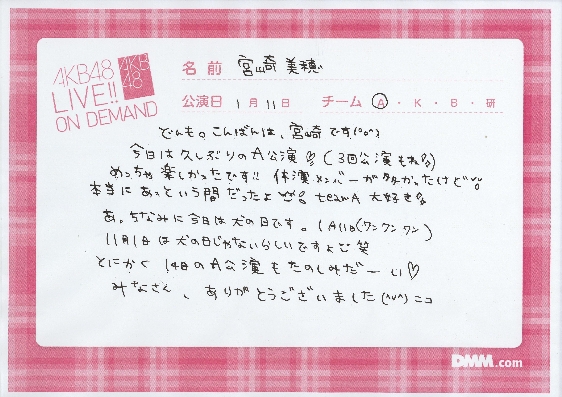 AKB48
LIVE!!
ON DEMAND
AKB
48
名前 宮崎美穂
公演日 1月11日 チーム Ⓐ・K・B・研
どんも。こんばんは、宮崎です(^o^)
今日は久しぶりのA公演 (3回公演もね)
めっちゃ楽しかったです!! 休演メンバーが多かったけど
本当にあっという間だったよ teamA 大好き
あ。ちなみに今日は犬の日です。(1月11日(ワンワンワン)
11月1日は犬の日じゃないらしいですよ 笑
とにかく 14日のA公演もたのしみだーい♡
みなさん、ありがとうございました(^v^)ニコ
DMM.com